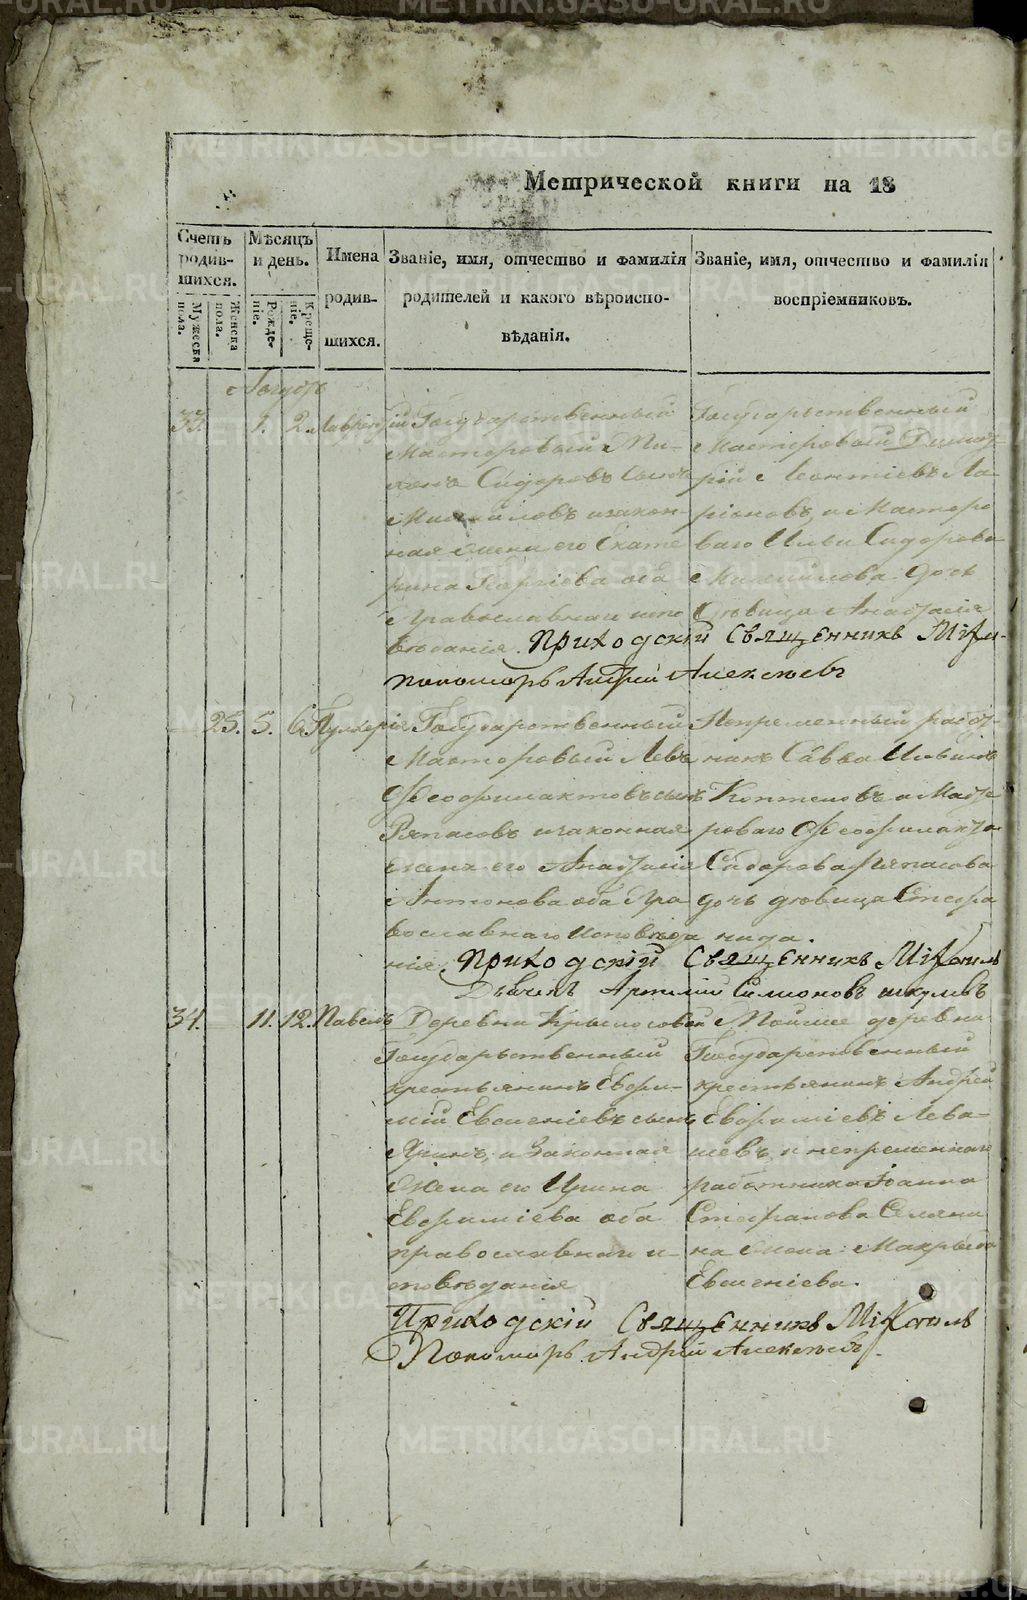 Метрической книги на 18
Счетъ родив- шихся.
Мѣсяцъ и день.
Имена родив- шихся.
Званіе, имя, отчество и фамилія родителей и какого вѣроиспо- вѣданія.
Званіе, имя, отчество и фамилія воспріемниковъ.
Мужеска пола.
Женска пола.
Рожде- ніе.
Креще- ніе.
Августъ
33. 1. 2. Лаврентій
Государственный
Мастеровый
Сидоровъ сынъ
изакон-
ная жена его Екате
рина Георгіева оба
Православнаго испо
вѣданія.
Государственный
Мастеровый Димит-
рій Леонтіевъ Ла-
ріоновъ, и Мастеро
ваго Ильи Сидорова
дочь
дѣвица Анастасія
Приходскій Священникъ
Пономарь Андрей Алексѣевъ
25. 5. 6. Пулхерія
Государственный
Мастеровый Левъ
Феофилактовъ сынъ
изаконная
жена его Анастасія
Антонова оба Пра
вославнаго Исповѣда
нія.
Непременный работ-
никъ Савва Ильинъ
Коптеловъ и Масте
роваго Феофилакта
Сидорова
дочь дѣвица Стефа
нида.
Приходскій Священникъ Михаилъ
Дьячекъ Артемій Симоновъ
34. 11. 12. Павелъ
Деревни
Государьственный
крестьянинъ Ефи-
мій Евгеніевъ сынъ
и Законная
Жена его Ирина
Ефиміева оба
православнаго и-
сповѣданія
Тойже деревни
Государственный
крестьянинъ Андрей
Ефиміевъ Лева-
шевъ, и непременнаго
работника Іоанна
Стефанова
жена
Евгеніева.
Приходскій Священникъ Михаилъ
Пономарь Андрей Алексѣевъ.
METRIKI.GASO-URAL.RU